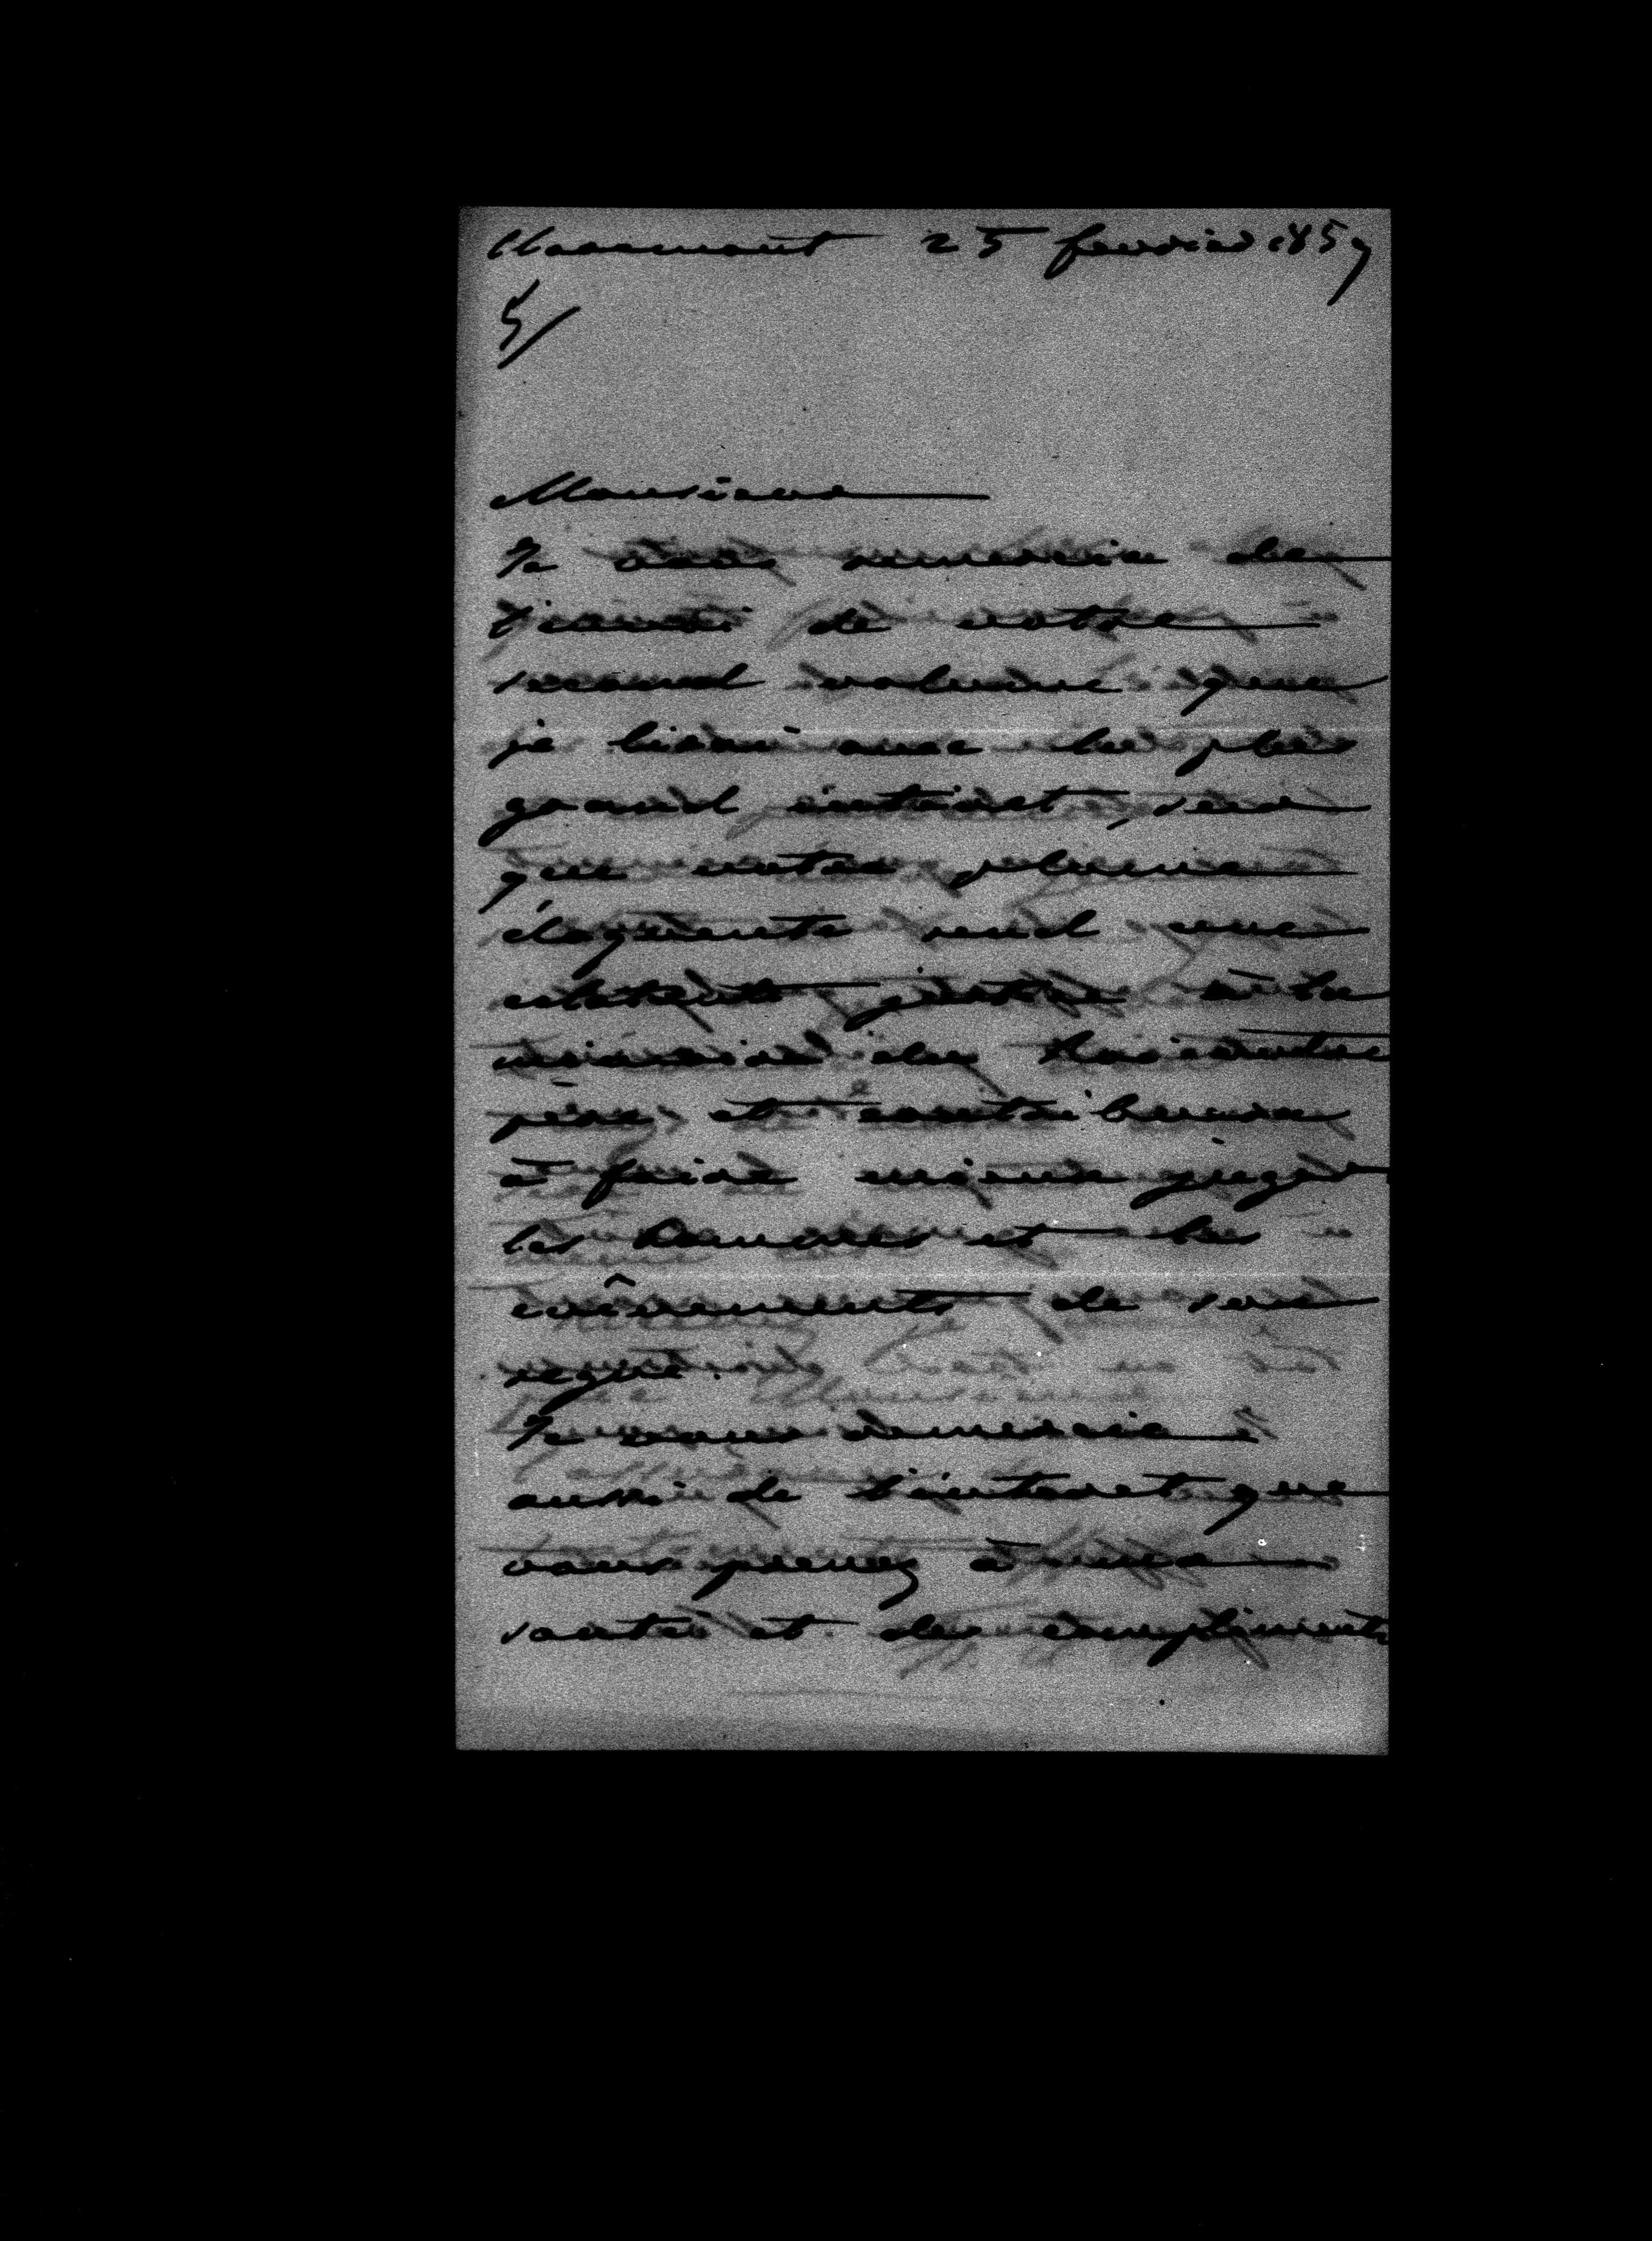 Claremont 25 fevrier 1859
5/
Monsieur
Je vous remercie de
l'envoi de votre
second volume que
je lirai avec le plus
grand interet, sur
que votre plume
éloquente rend une
eclatante justice à la
mémoire du Roi votre
père et contribuera
à faire mieux juger
les hommes et les
evênements de son
regne.
Je vous remercie
aussi de l'interet que
vous prenez à ma
santé et des compliments